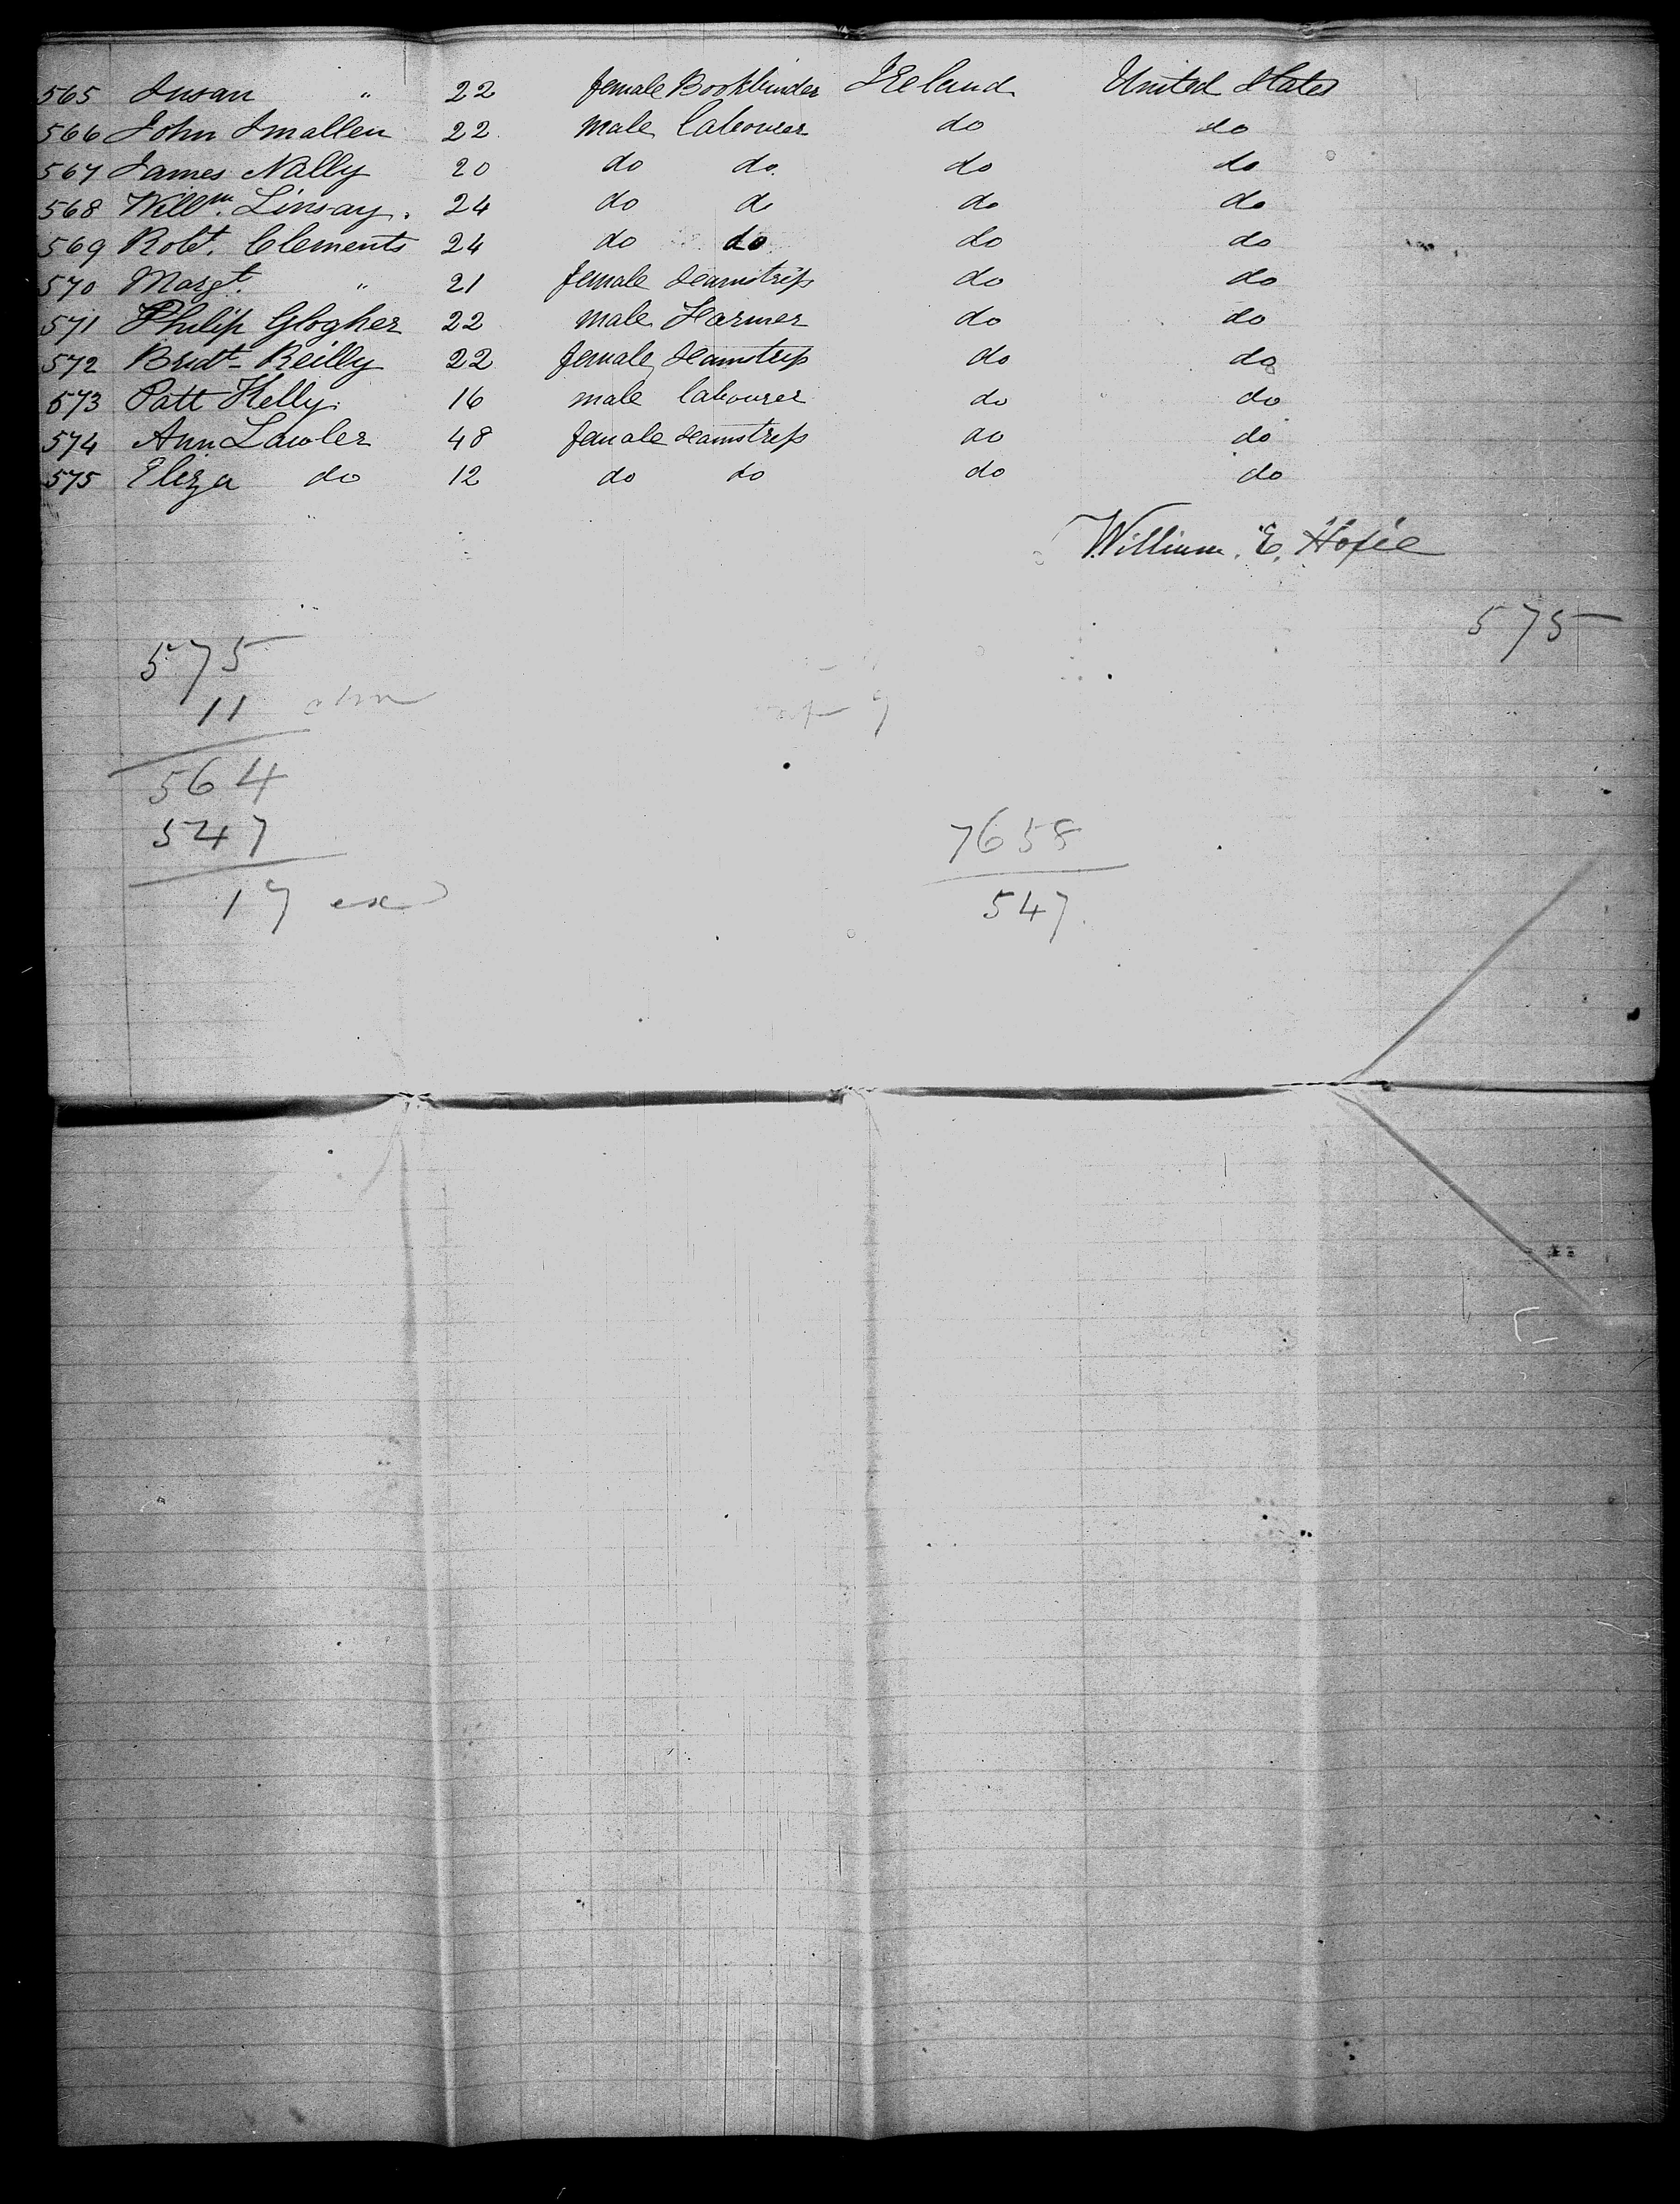 565 Susan " 22 female Bookbinder Ireland United States
566 John Smallen 22 male labourer do do
567 James Nally 20 do do do do
568 Willm. Linsay. 24 do do do do
569 Robt. Clements 24 do do do do
570 Margt. " 21 female Seamstress do do
571 Philip Glogher 22 male Farmer do do
572 Bridt Reilly 22 female Seamstress do do
573 Patt Kelly 16 male labourer do do
574 Ann Lawler 48 female Seamstress do do
575 Eliza do 12 do do do do
William. E.
575
575
11
564
547
17 ex
7658
547